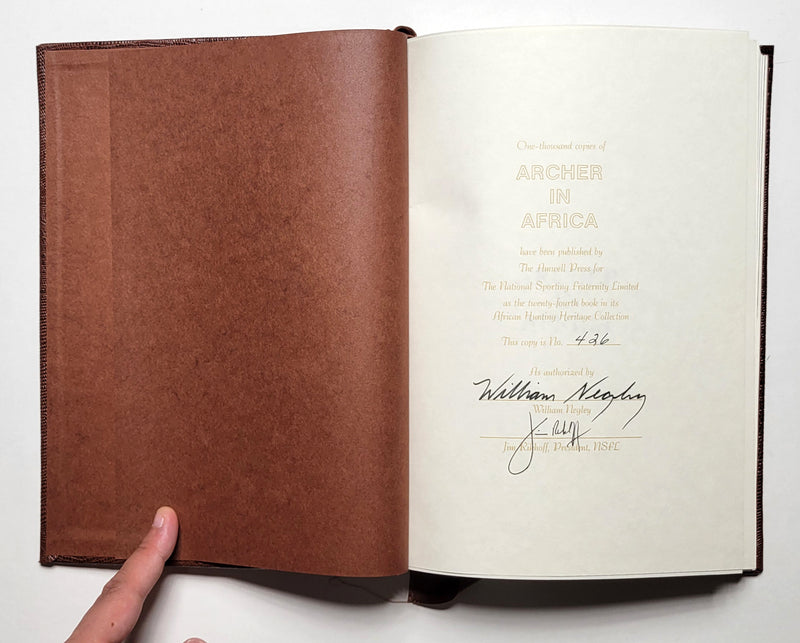 One-thousand copies of
ARCHER
IN
AFRICA
have been published by
The Amwell Press for
The National Sporting Fraternity Limited
as the twenty-fourth book in its
African Hunting Heritage Collection
This copy is No. 426
As authorized by
William Negley
William Negley
Jim Rikhoff
Jim Rikhoff, President, NSFL